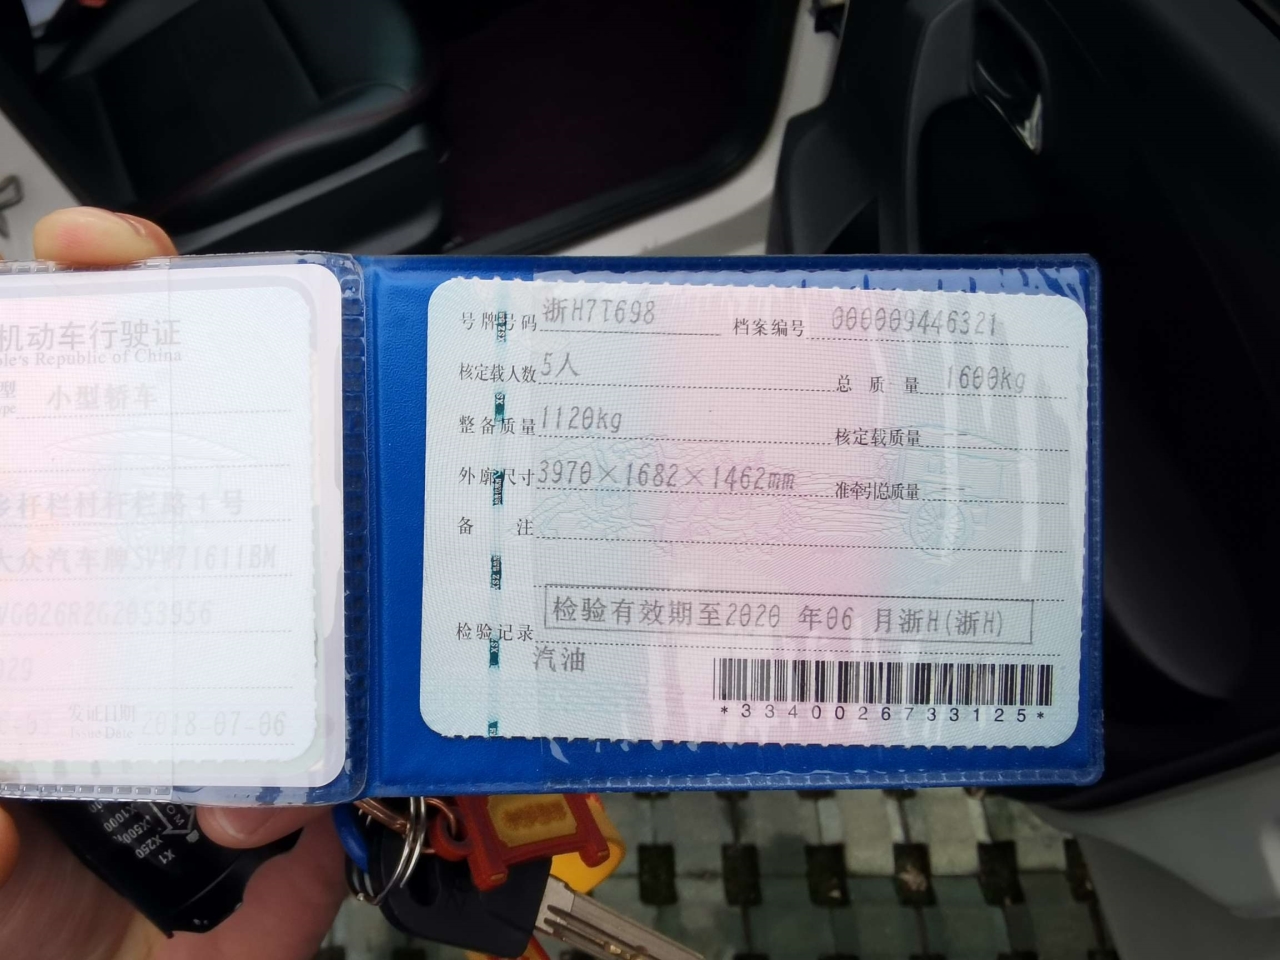 机动车行驶证
ple's Republic of China
型 小型轿车
ype
乡杆栏村杆栏路1号
大众汽车牌SVW71611BM
VG026R2G2053956
029
发证日期 2018-07-06
Issue Date
号牌号码 浙H7T698 档案编号 000009446321
核定载人数 5人 总质量 1600kg
整备质量 1120kg 核定载质量 --
外廓尺寸 3970×1682×1462mm 准牵引总质量 --
备注
检验有效期至2020 年06 月浙H(浙H)
检验记录
汽油
*3340026733125*
X1
X250
X500
X1000